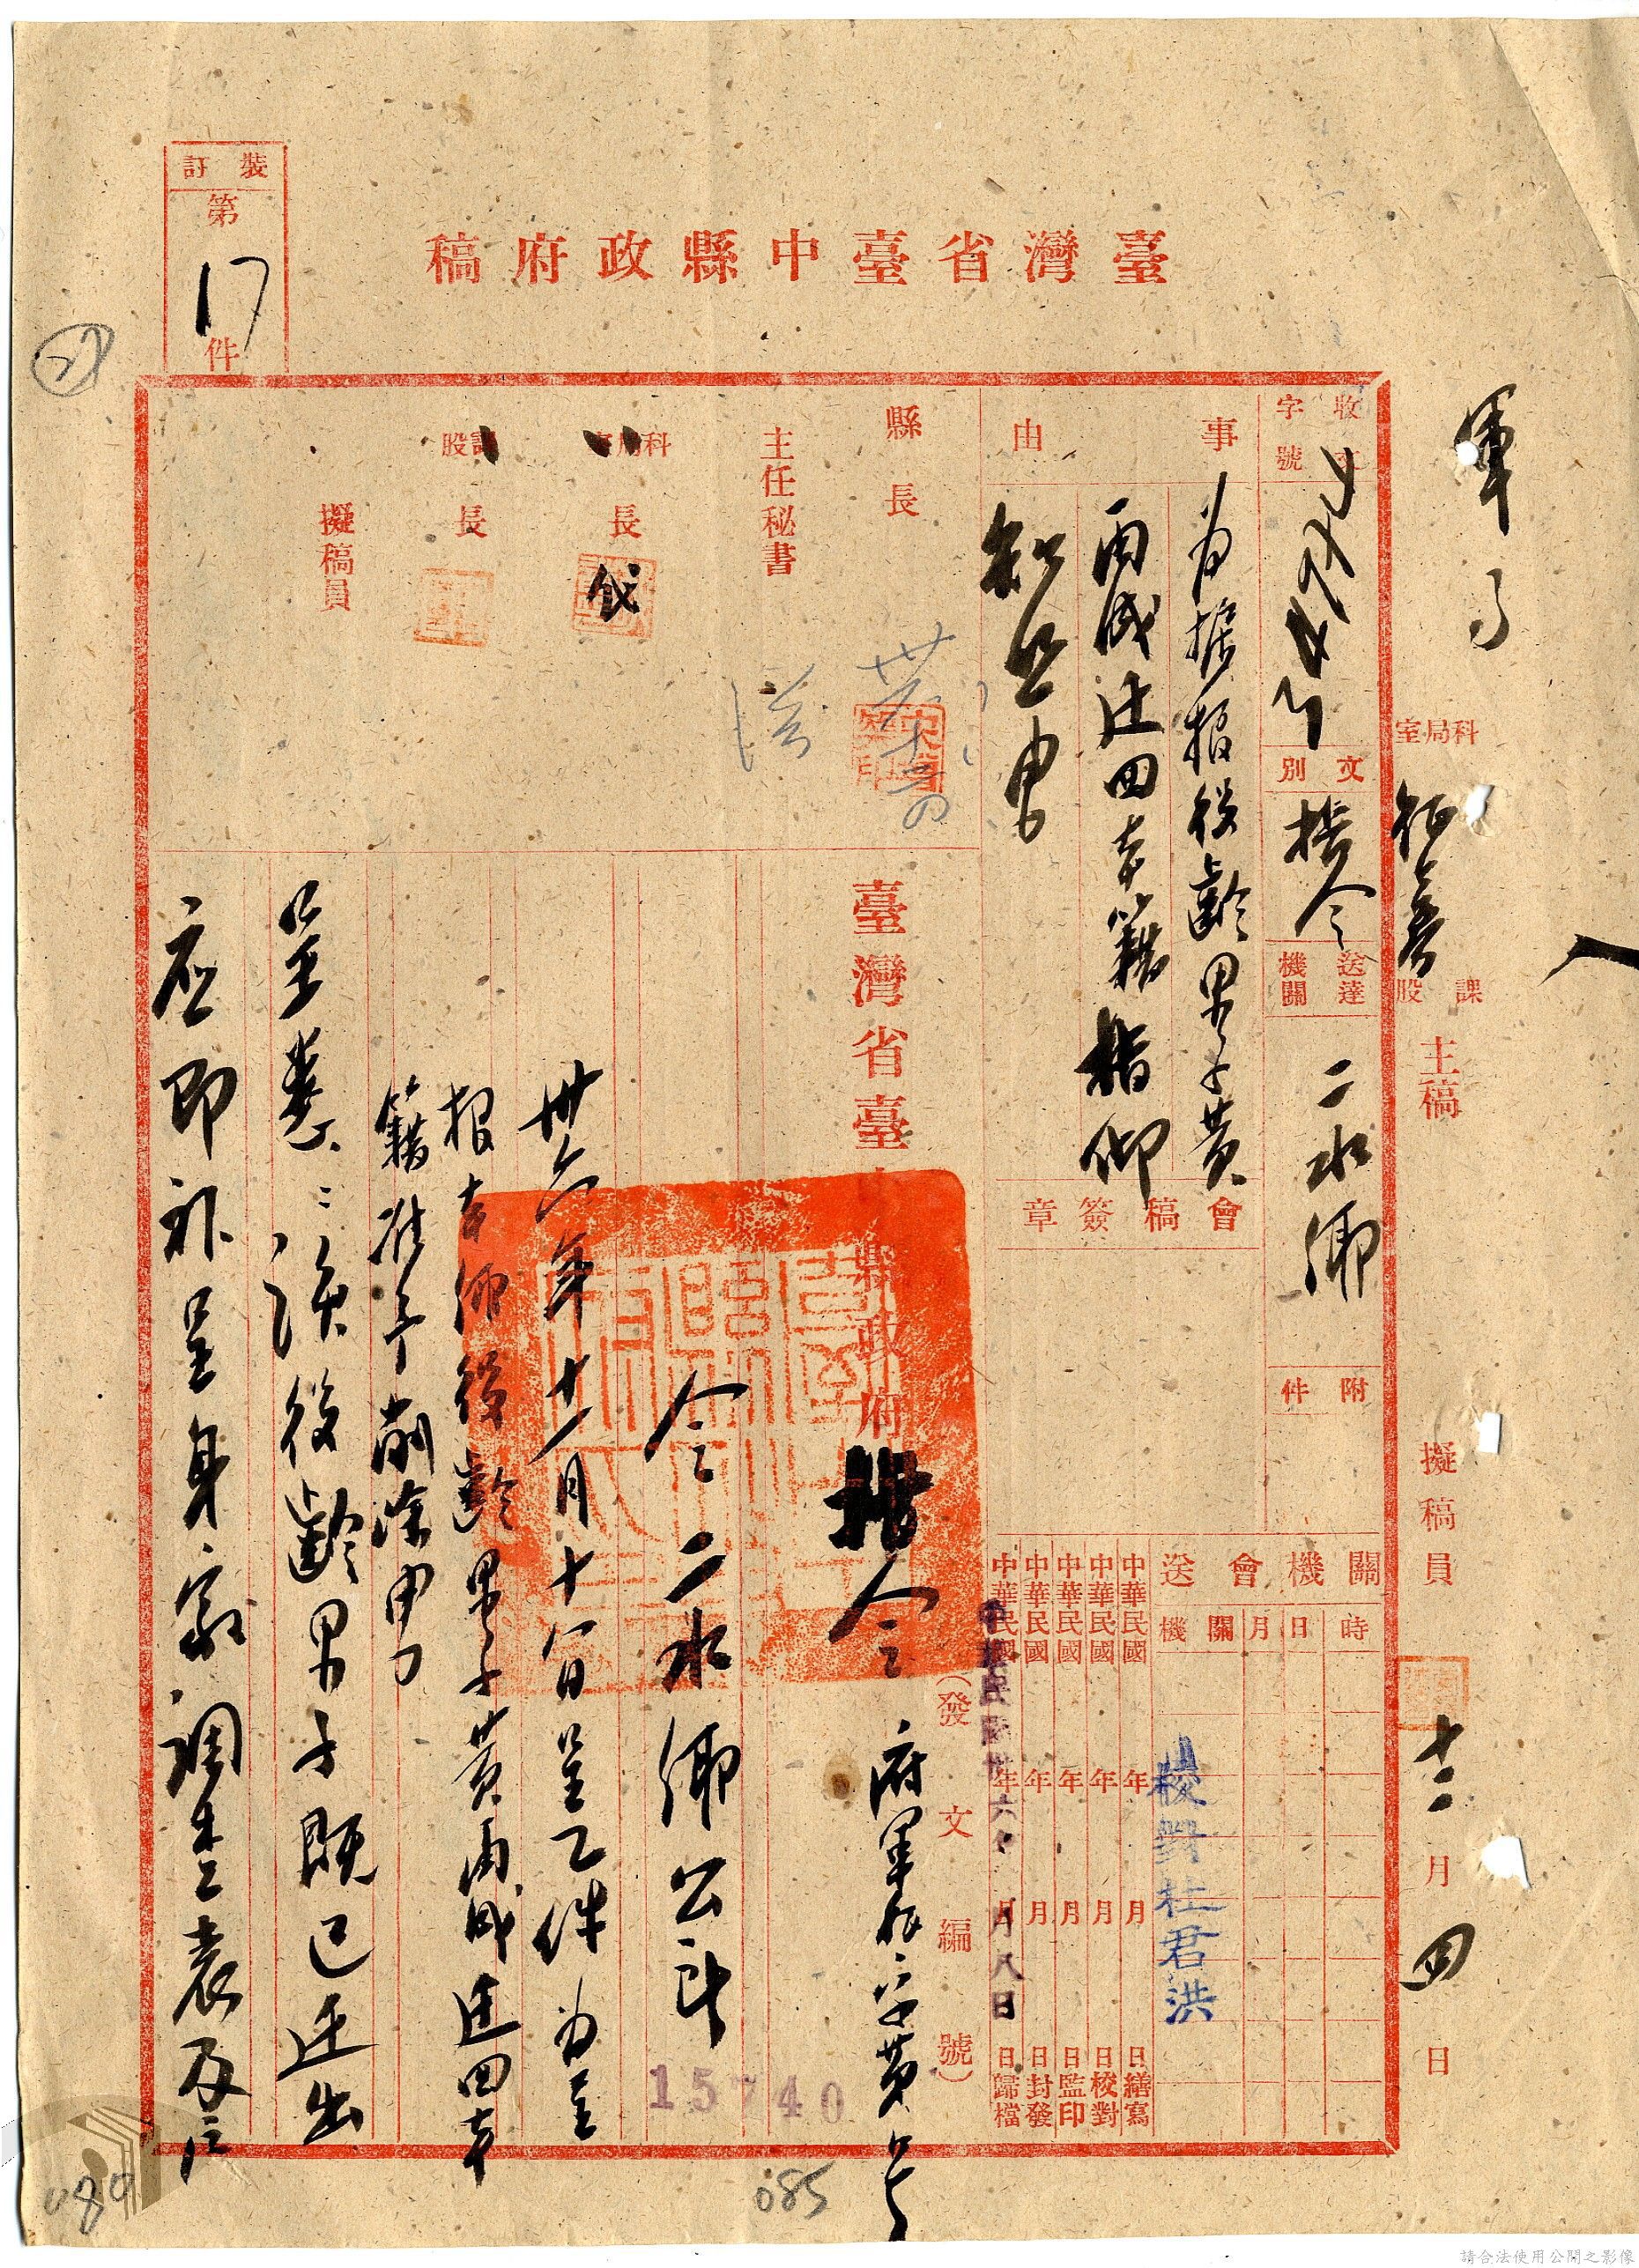 臺灣省臺中縣政府稿
裝訂
第
17
件
軍
科局室
課股
主稿
擬稿員
十二月四日
收文
字號
文別
指令
送達機關
二水鄉
附件
事由
為據報役齡男子黃
丙成迁回本籍指仰
知照由
會稿簽章
會送機關
機關
月
日
時
校對杜君洪
中華民國 年 月 日繕寫
中華民國 年 月 日校對
中華民國 年 月 日監印
中華民國 年 月 日封發
中華民國 年 月 日歸檔
中華民國卅六年 月八日
縣長
主任秘書
科局室長
課股長
擬稿員
臺灣省臺中縣政府指令
(發文編號)
府軍征字第 號
15740
令二水鄉公所
卅六年十一月十八日呈乙件為呈
報本鄉役齡男子黃丙成迁回本
籍准予削除由
呈悉:該役齡男子既已迁出
應即補呈身家調查表及
085
請合法使用公開之影像